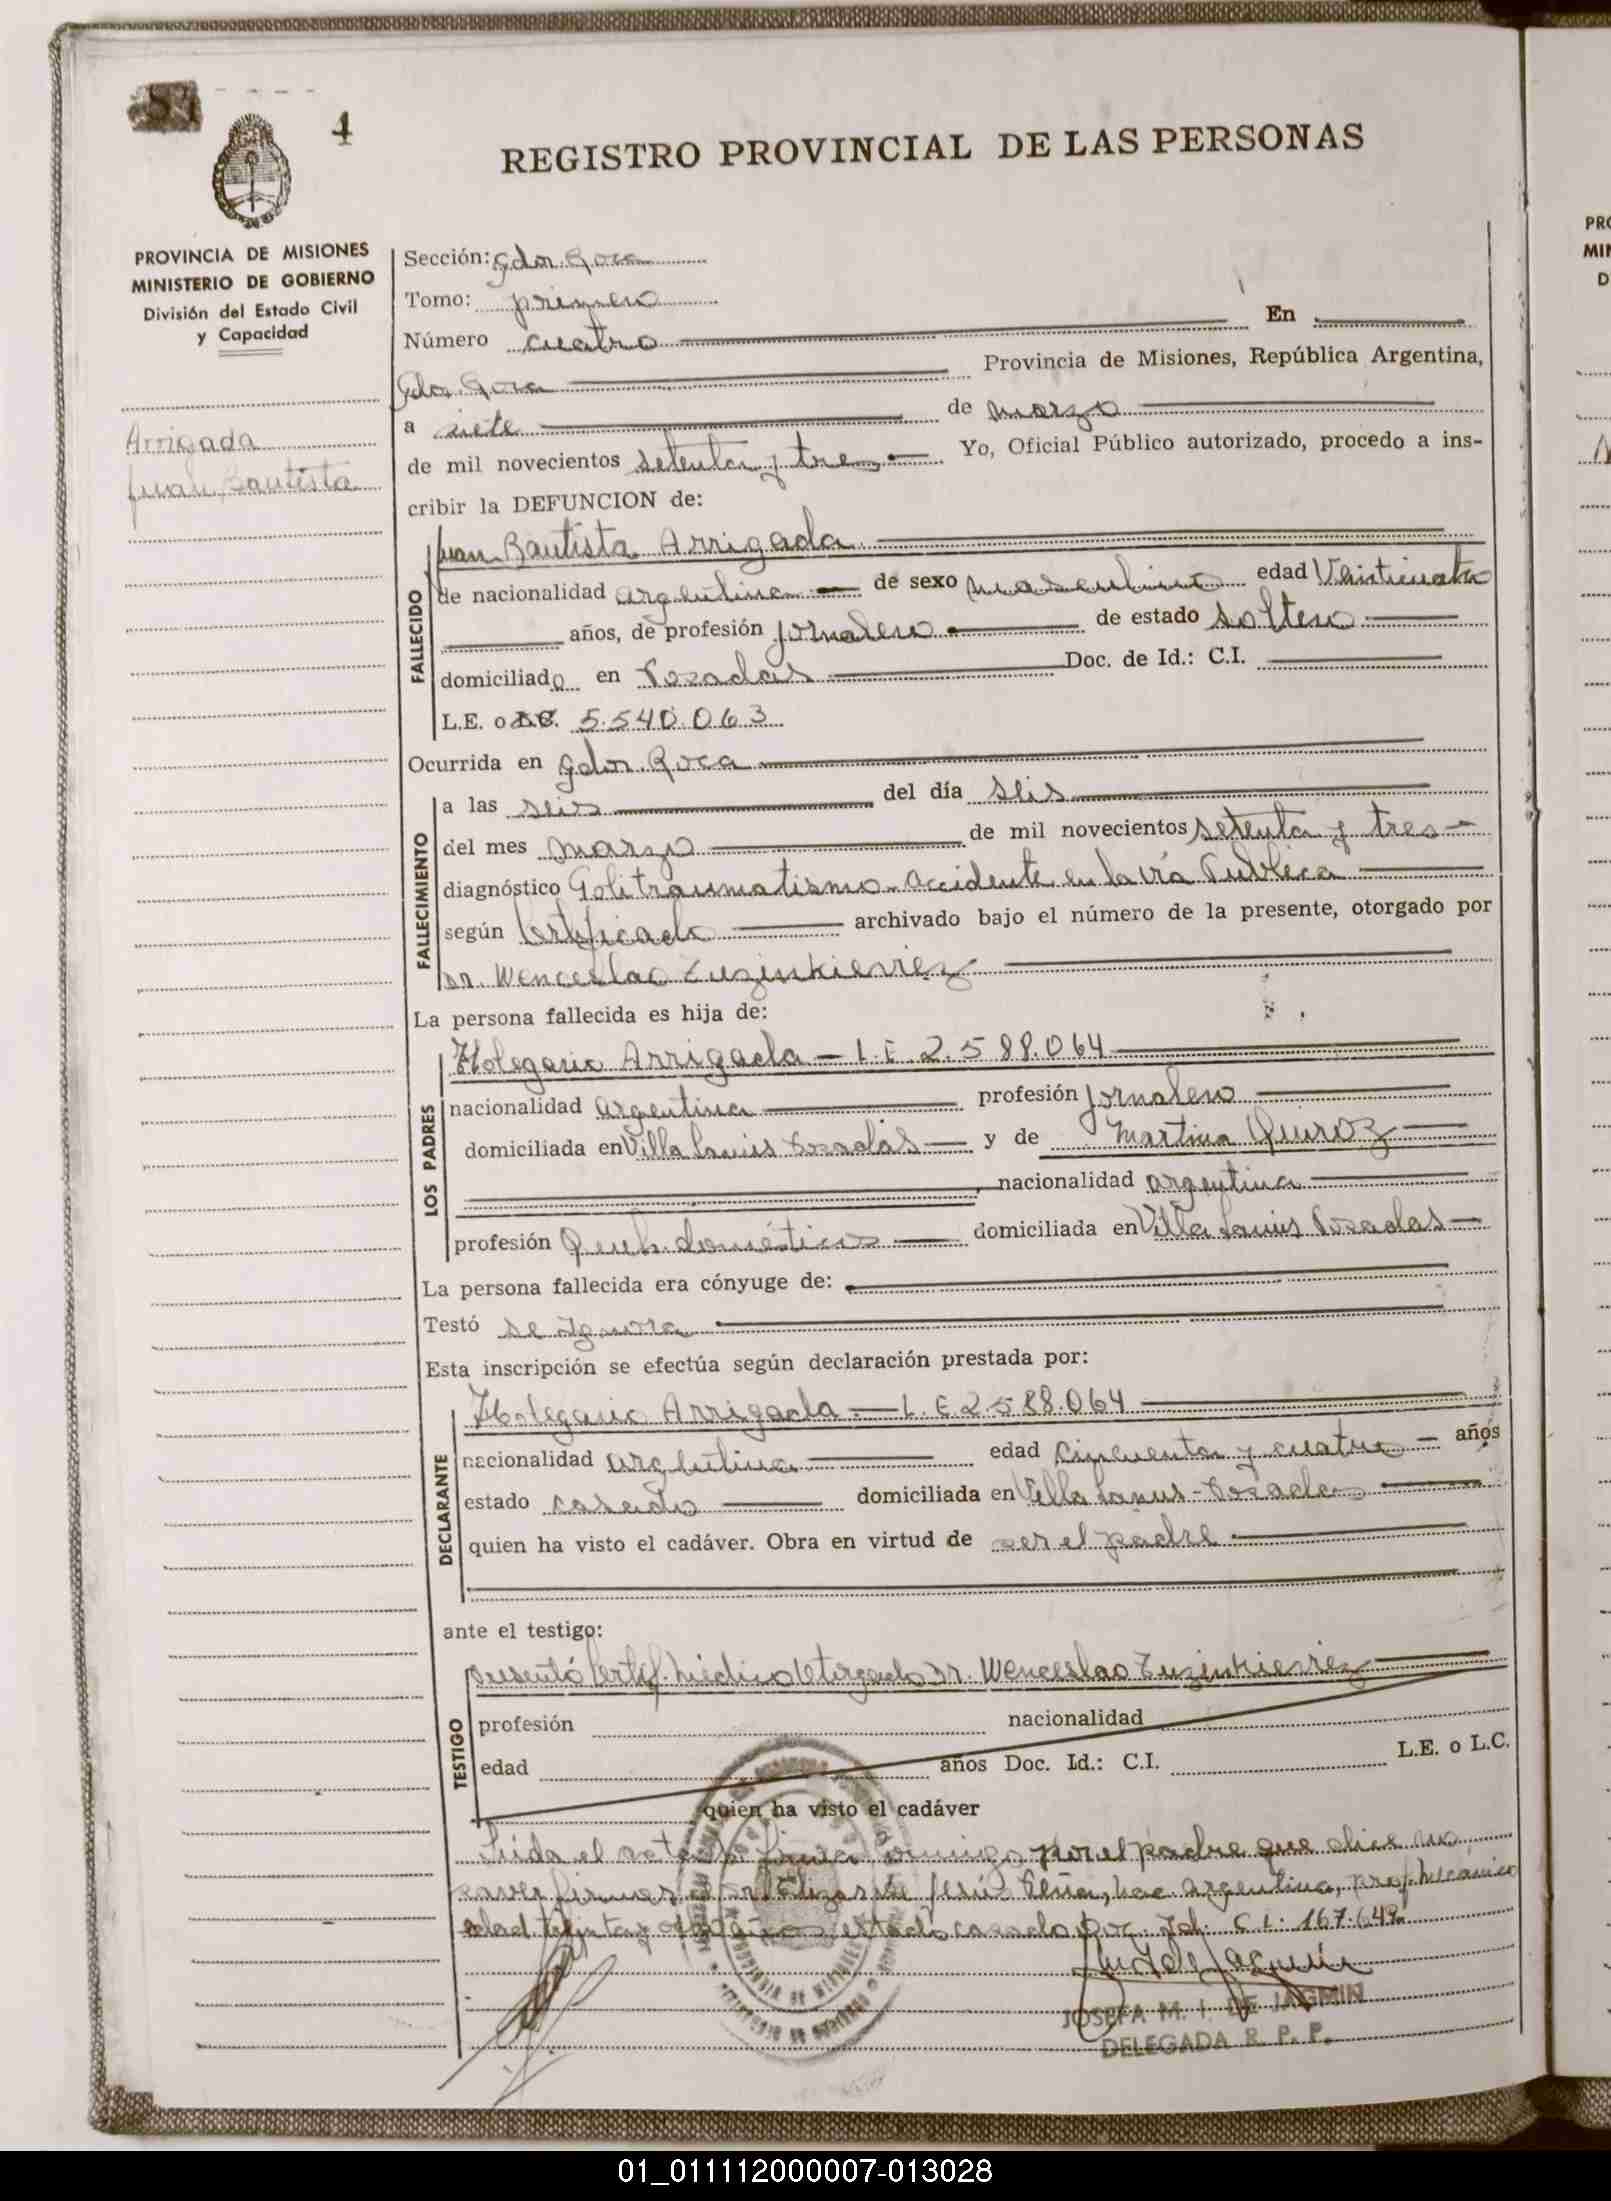 4
REGISTRO PROVINCIAL DE LAS PERSONAS
PROVINCIA DE MISIONES
MINISTERIO DE GOBIERNO
División del Estado Civil
y Capacidad
Arrigada
Juan Bautista
Sección: Gdor. Roca
Tomo: primero
Número cuatro En
Gdor. Roca Provincia de Misiones, República Argentina,
a siete de marzo
de mil novecientos setenta y tres Yo, Oficial Público autorizado, procedo a ins-
cribir la DEFUNCION de:
FALLECIDO
Juan Bautista Arrigada
de nacionalidad argentina de sexo masculino edad Veinticuatro
años, de profesión Jornalero de estado soltero
domiciliado en Posadas Doc. de Id.: C.I.
L.E. o 5.540.063
Ocurrida en Gdor. Roca
FALLECIMIENTO
a las seis del día seis
del mes marzo de mil novecientos setenta y tres
diagnóstico Politraumatismo - accidente en la vía Pública
según Certificado archivado bajo el número de la presente, otorgado por
Dr. Wenceslao
La persona fallecida es hija de:
LOS PADRES
Holegario Arrigada - L.E. 2.588.064
nacionalidad argentina profesión Jornalero
domiciliada en Villa Lanus Posadas y de Martina Quiroz
, nacionalidad argentina
profesión domiciliada en Villa Lanus Posadas
La persona fallecida era cónyuge de:
Testó se Ignora
Esta inscripción se efectúa según declaración prestada por:
DECLARANTE
Holegario Arrigada - L.E 2.588.064
nacionalidad argentina edad cincuenta y cuatro años
estado casado domiciliada en Villa Lanus - Posadas
quien ha visto el cadáver. Obra en virtud de ser el padre
ante el testigo:
TESTIGO
Presentó Certif. Médico Otorgado Dr. Wenceslao
profesión nacionalidad
edad años Doc. Id.: C.I. L.E. o L.C.
quien ha visto el cadáver
Leida el acta por el padre que dice no
saver firmar nac. argentina, prof. Mecánico
edad estado casado Doc. Id. C.I. 167.649
JOSEFA M. I. DE JAGMIN
DELEGADA R. P. P.
PRO
MIN
D
01_011112000007-013028